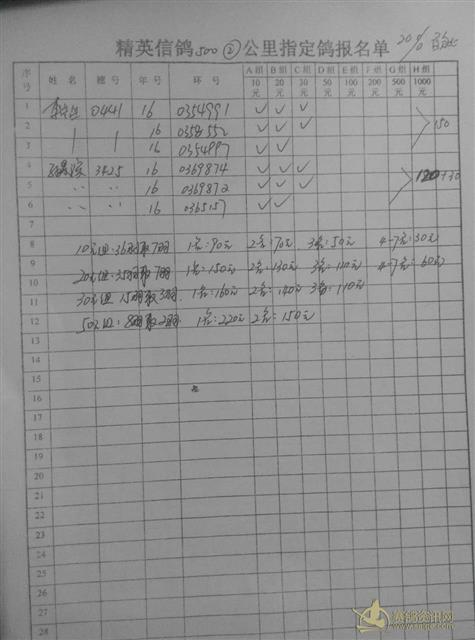 精英信鸽500②公里指定鸽报名单 20%
序号 姓名 棚号 年号 环号 A组10元 B组20元 C组30元 D组50元 E组100元 F组200元 G组500元 H组1000元
1 0441 16 0354991 ✓ ✓ ✓
2 16 0358552 ✓ ✓ ✓ 150
3 16 0354997 ✓ ✓
4 3425 16 0369874 ✓ ✓ ✓
5 〃 〃 16 0369872 ✓ ✓ ✓ +30
6 〃 〃 16 0365157 ✓ ✓
7
8 10元组:36羽取7羽 1名:90元 2名:70元 3名:50元 4-7名:30元
9 20元组:35羽取7羽 1名:150元 2名:130元 3名:110元 4-7名:60元
10
11 30元组 15羽取3羽 1名:160元 2名:140元 3名:110元
12 50元组:8羽取2羽 1名:220元 2名:150元
13
14
15
16
17
18
19
20
21
22
23
24
25
26
27
28
28
赛鸽资讯网